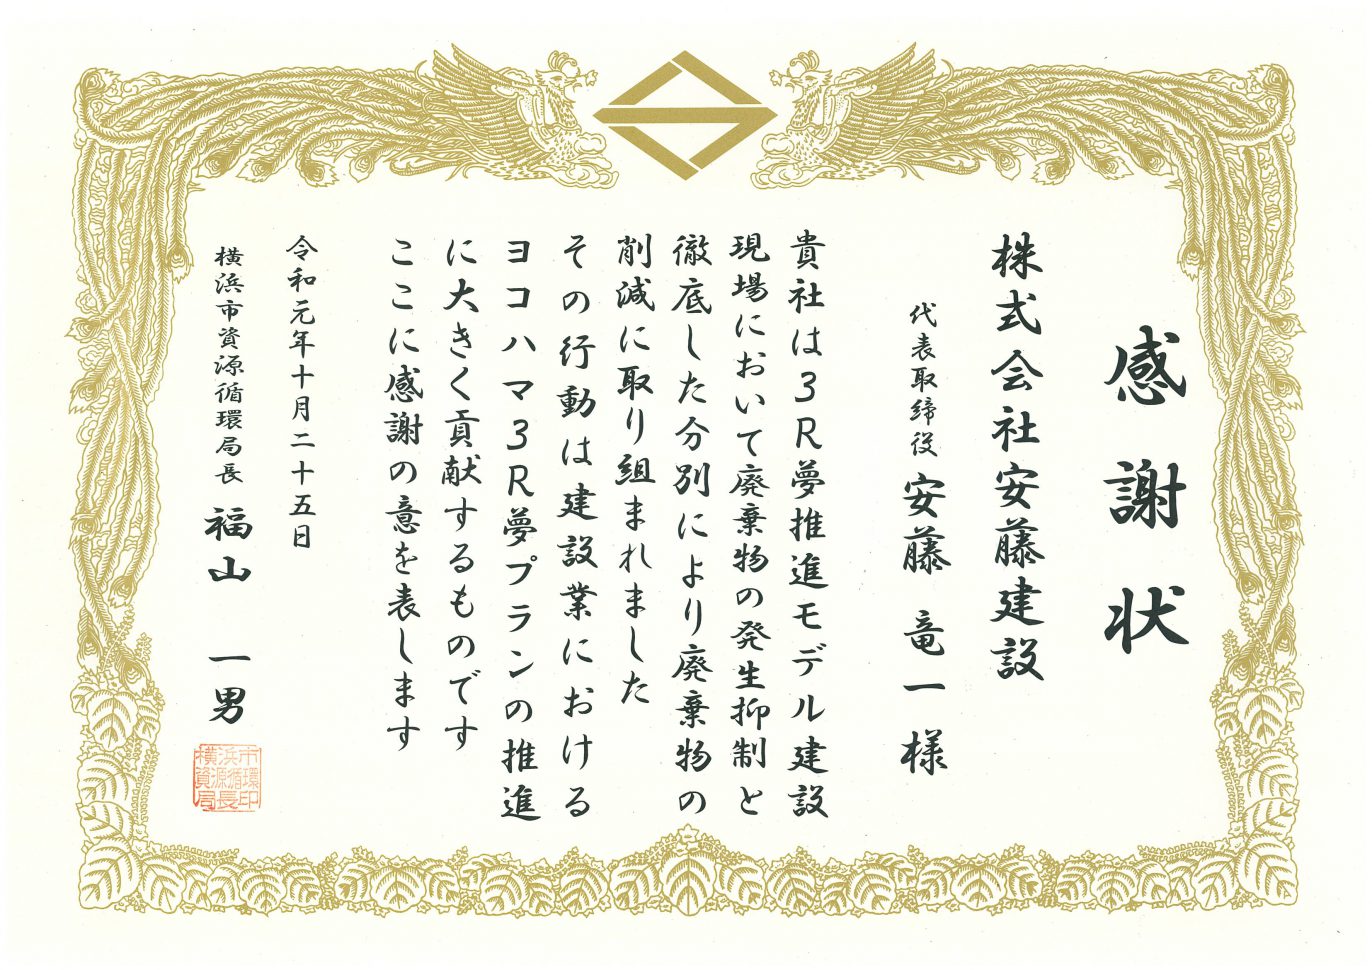 感謝状
株式会社安藤建設
代表取締役 安藤 竜一様
貴社は3R夢推進モデル建設
現場において廃棄物の発生抑制と
徹底した分別により廃棄物の
削減に取り組まれました
その行動は建設業における
ヨコハマ3R夢プランの推進
に大きく貢献するものです
ここに感謝の意を表します
令和元年十月二十五日
横浜市資源循環局長 福山 一男
横浜市資源循環局長印